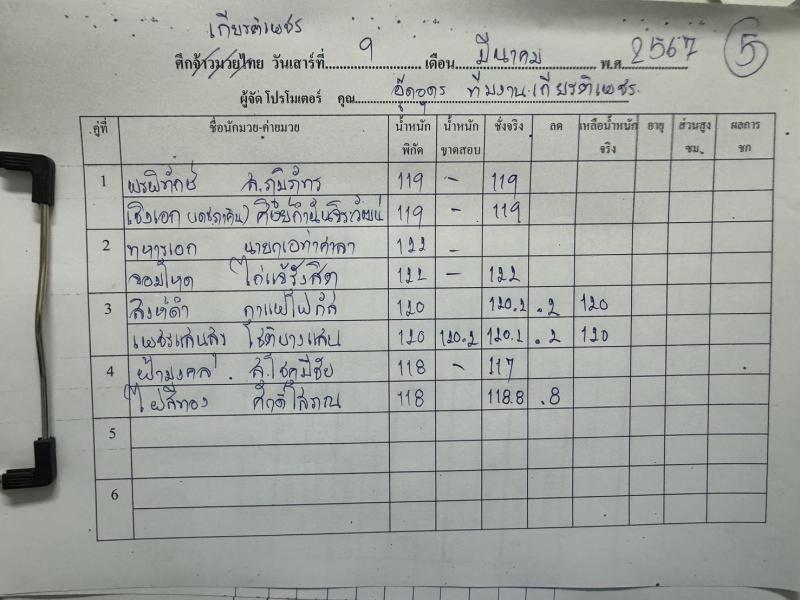 เกียรติเพชร
ศึกจ้าวมวยไทย วันเสาร์ที่ 9 เดือน มีนาคม พ.ศ. 2567 5
ผู้จัด โปรโมเตอร์ คุณ อู๊ดอุดร ทีมงาน เกียรติเพชร
คู่ที่ ชื่อนักมวย-ค่ายมวย น้ำหนักพิกัด น้ำหนักขาดสอบ ชั่งจริง ลด เหลือน้ำหนักจริง อายุ ส่วนสูง ซม. ผลการชก
1 พรพิทักษ์ ส.ภูมิภัทร 119 - 119
เชิงเอก ศิษย์กำนัน 119 - 119
2 ทหารเอก นายกเอท่าศาลา 122 -
จอมโหด ไก่แจ้รังสิต 122 - 122
3 สิงห์ดำ กาแฟโฟกัส 120 120.2 .2 120
เพชรแสนสุข โชติบางแสน 120 120.2 120.2 .2 120
4 ฟ้ามงคล ส.โชคมีชัย 118 - 117
ไผ่สีทอง ศักดิ์โสภณ 118 118.8 .8
5
6